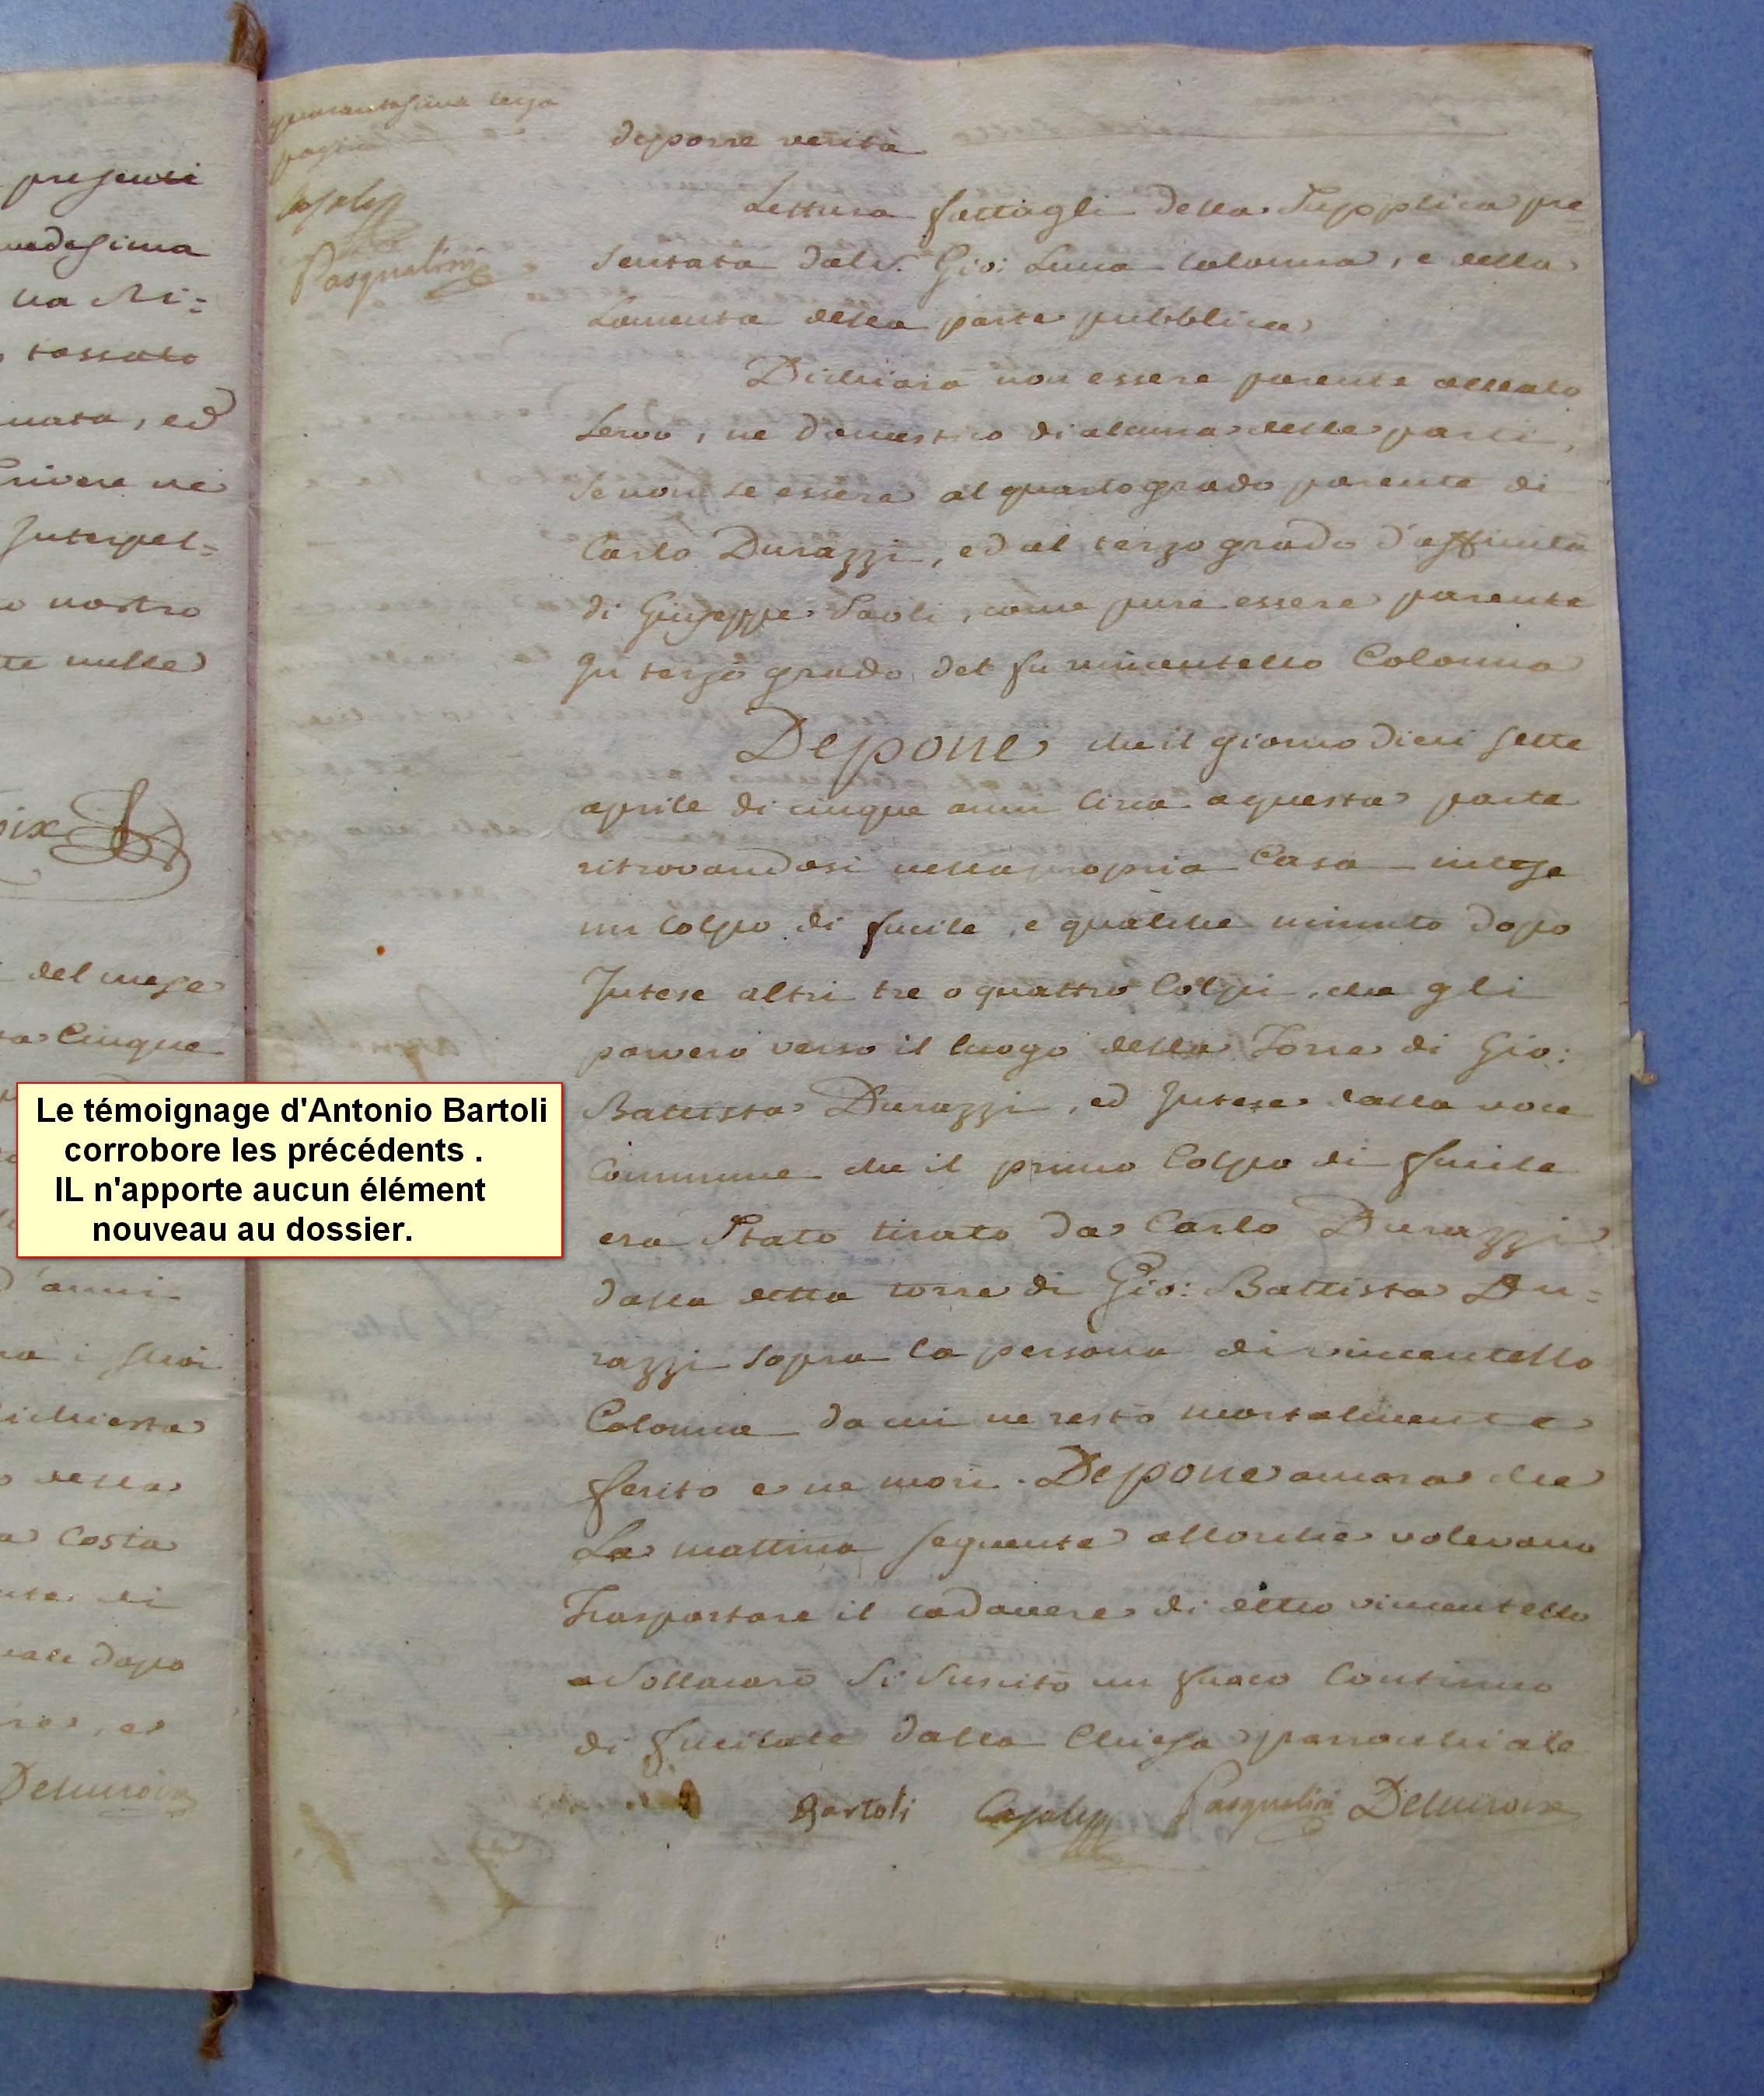 presenti
medesima
na Ri=
tassato
mata, ed
scrivere ne
Interpel=
o nostro
te nulle
del mese
ta Cinque
d'anni
na i suoi
richiesta
o della
a Costa
nte di
dopo
Delacroix
quarantesima terza
pagina
Casalta
Pasqualini
deporre verità
Lettura fattagli della Supplica pre
sentata dal S.r Gio: Luca Colonna, e della
Lamenta della parte pubblica
Dichiara non essere parente alleato
servo, ne domestico di alcuna delle parti,
se non se essere al quarto grado parente di
Carlo Durazzi, ed al terzo grado d'affinità
di Giuseppe Paoli, come pure essere parente
In terzo grado del fu vincentello Colonna
Depone che il giorno dieci sette
aprile di cinque anni circa a questa parte
ritrovandosi nella propria Casa intese
un colpo di fucile, e qualche minuto dopo
Intese altri tre o quattro Colpi, che gli
parvero verso il luogo della Torre di Gio:
Battista Durazzi, ed Intese dalla voce
Commune che il primo Colpo di fucile
era Stato tirato da Carlo Durazzi
dalla detta torre di Gio: Battista Du=
razzi sopra la persona di vincentello
Colonna da cui ne restò mortalmente
ferito e ne morì. Depone ancora che
La mattina seguente allorché volevano
Trasportare il cadavere di detto vincentello
a Sollacarò Si Suscitò un fuoco Continuo
di fucilate dalla Chiesa parrochiale
Bartoli Casalta Pasqualini Delacroix
Le témoignage d'Antonio Bartoli
corrobore les précédents .
IL n'apporte aucun élément
nouveau au dossier.